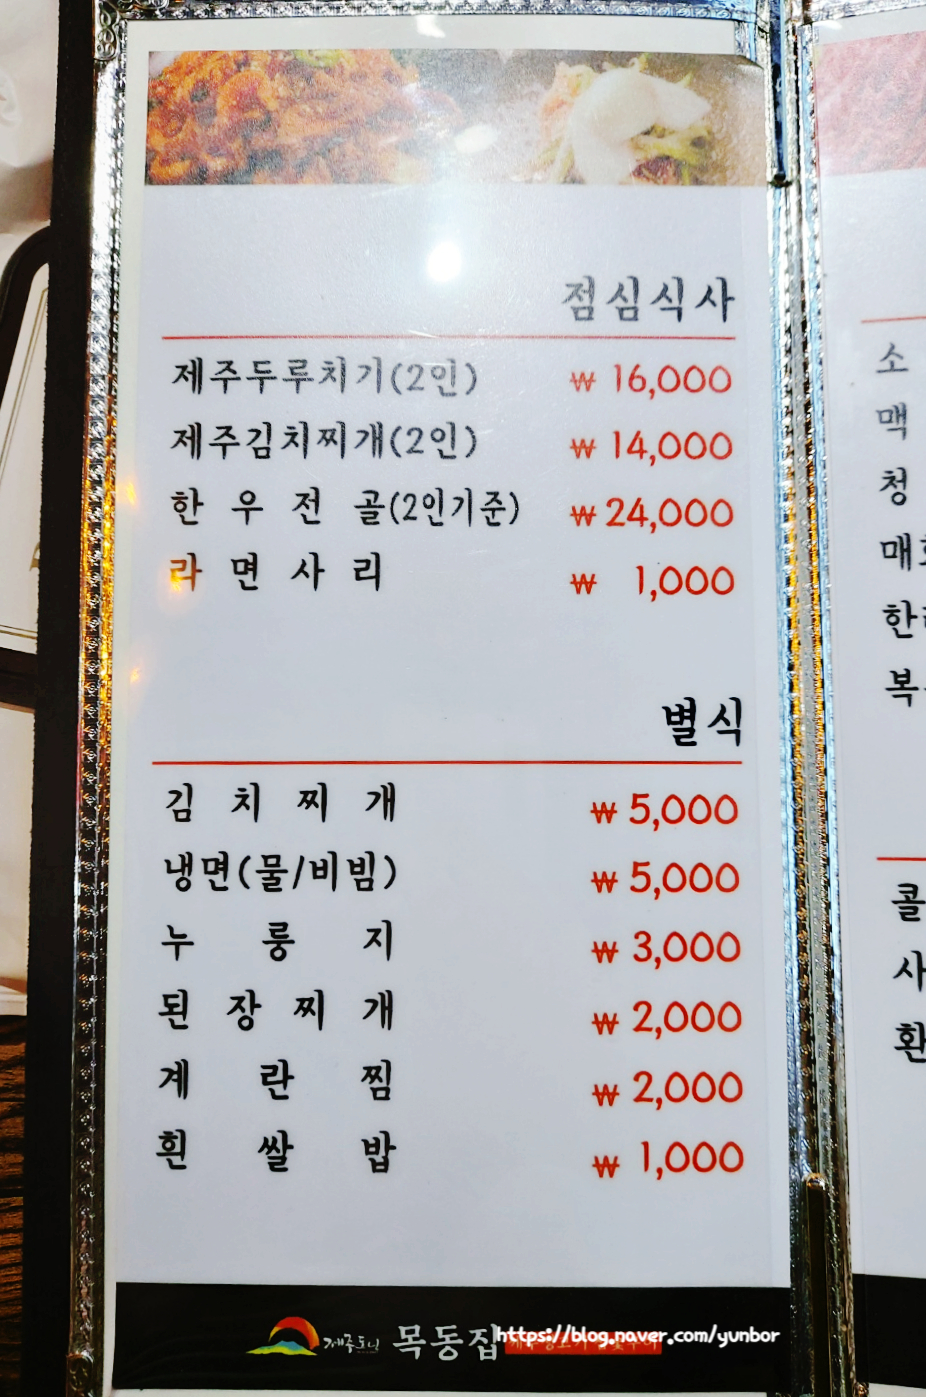 점심식사
제주두루치기(2인) ₩ 16,000
제주김치찌개(2인) ₩ 14,000
한 우 전 골(2인기준) ₩ 24,000
라 면 사 리 ₩ 1,000
별식
김 치 찌 개 ₩ 5,000
냉면(물/비빔) ₩ 5,000
누 룽 지 ₩ 3,000
된 장 찌 개 ₩ 2,000
계 란 찜 ₩ 2,000
흰 쌀 밥 ₩ 1,000
제주도니 목동집
https://blog.naver.com/yunbor
소
맥
청
매
한
복
콜
사
환